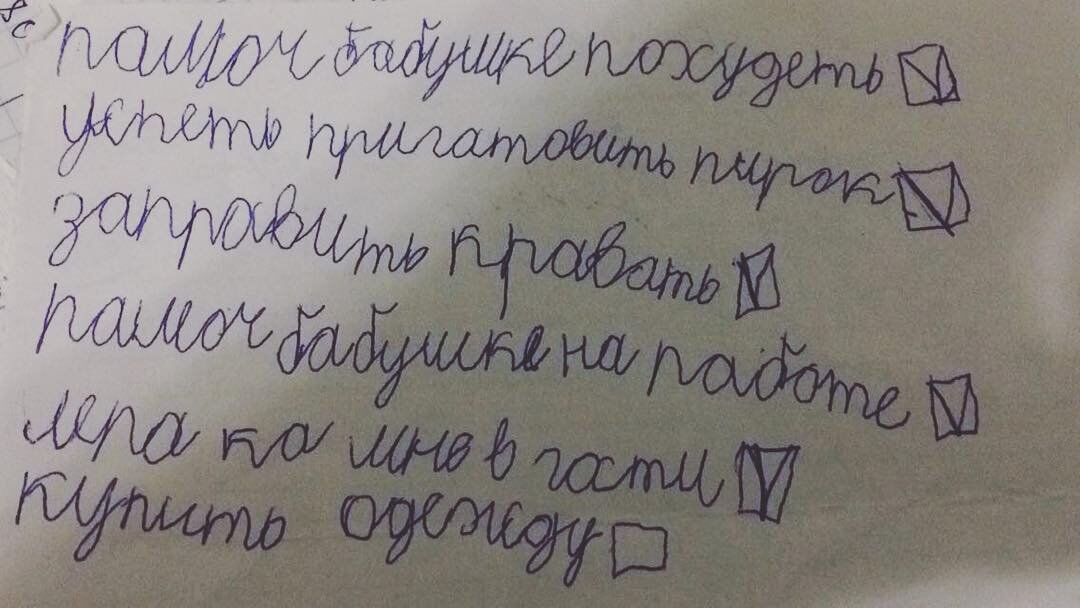 памоч бабушке похудеть
успеть пригатовить пирок
заправить кравать
памоч бабушке на работе
лера ка мне в гости
купить одежду